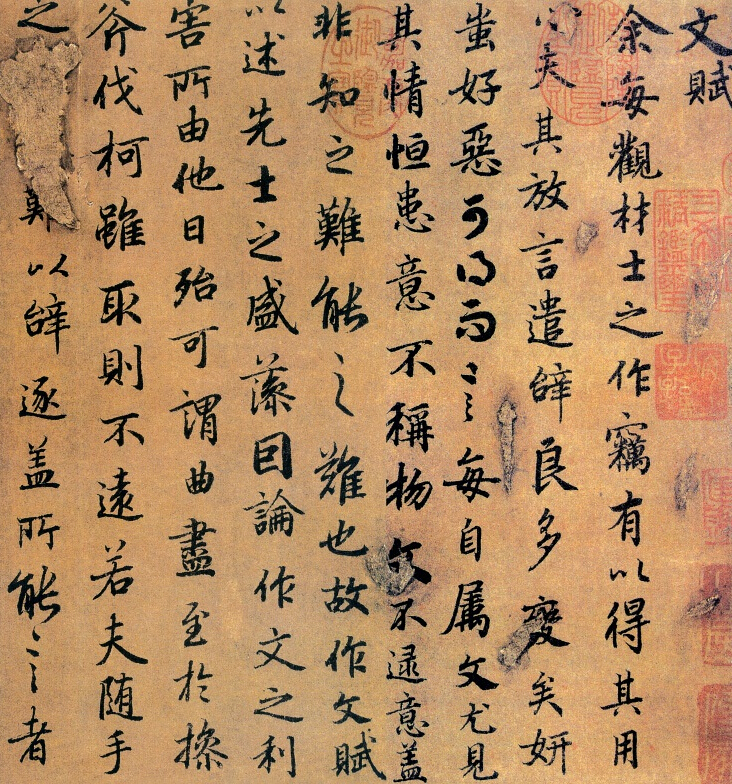 文賦
余每觀材士之作竊有以得其用
心矣其放言遣辭良多變矣妍
蚩好惡可得而言每自属文尤見
其情恒患意不稱物文不逮意盖
非知之難能之難也故作文賦
以述先士之盛藻因論作文之利
害所由他日殆可謂曲盡至於操
斧伐柯雖取則不遠若夫随手
之難以辭逐盖所能言者
三希堂精鑑璽
宜子孫